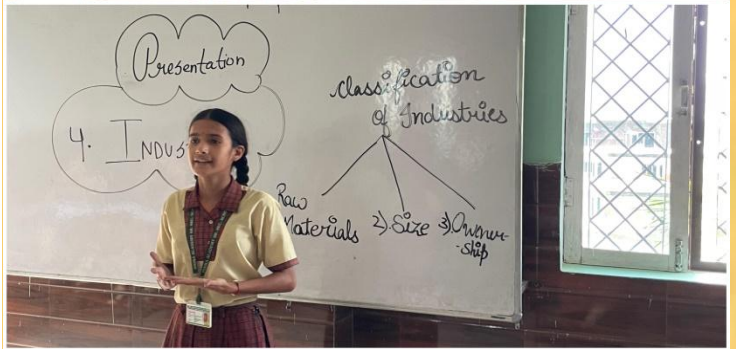 Presentation
4. INDUS
Classification
of Industries
Raw
Materials
2). Size
3). Owner-
-ship